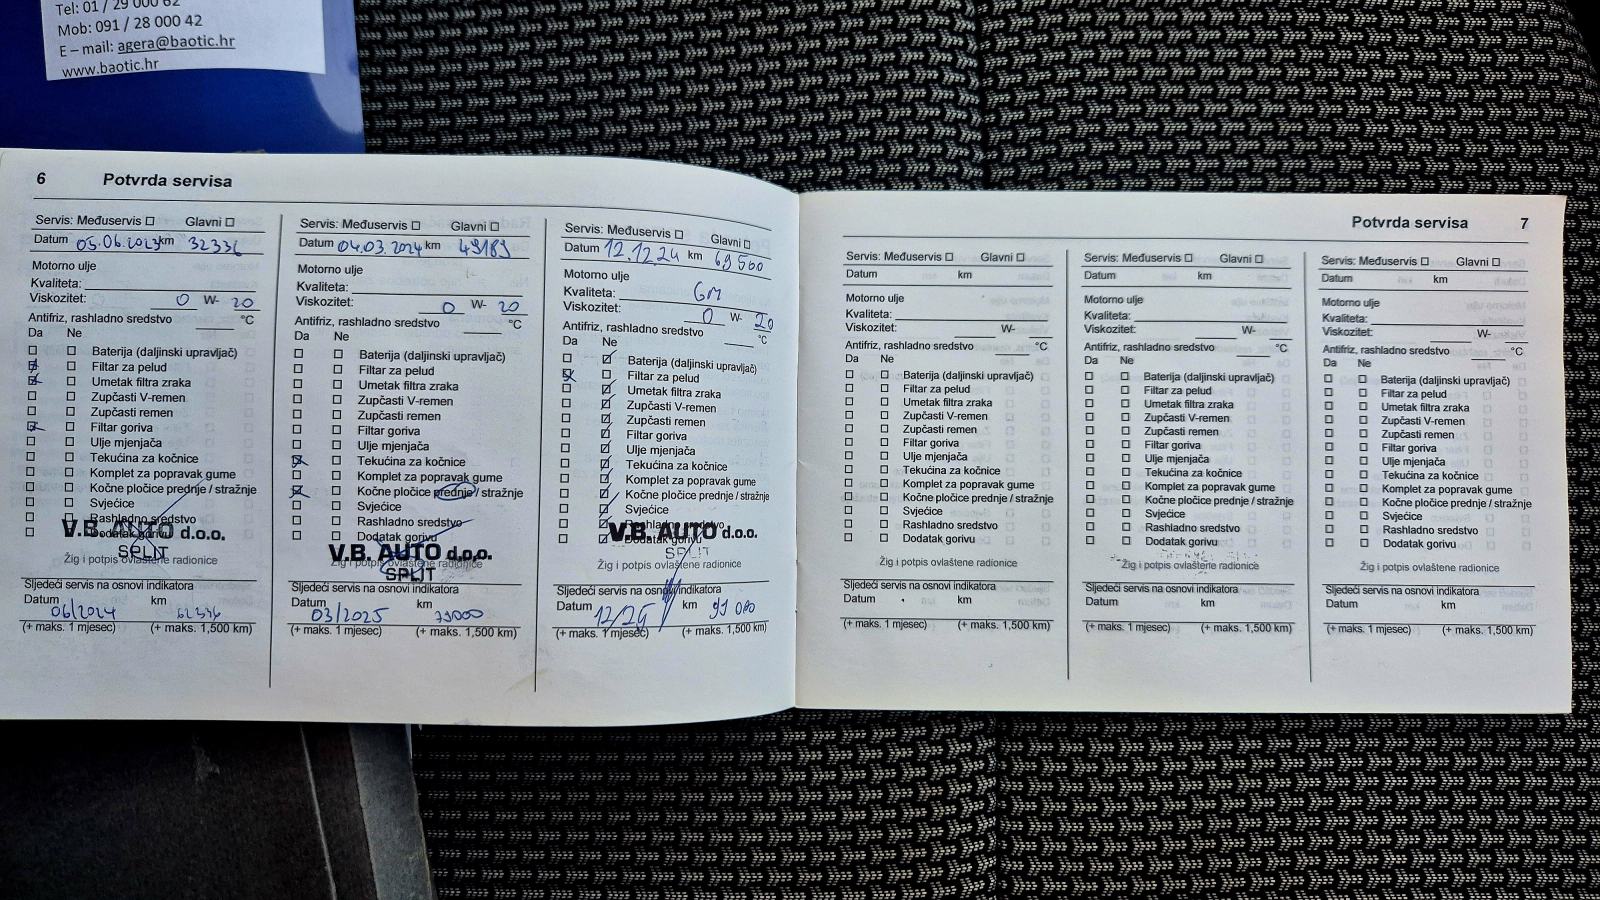 Tel: 01 / 29 000 62
Mob: 091 / 28 000 42
E – mail: agera@baotic.hr
www.baotic.hr
6 Potvrda servisa
Servis: Međuservis Glavni
Datum 05.06.2023 km 32336
Motorno ulje
Kvaliteta:
Viskozitet: 0 W- 20
Antifriz, rashladno sredstvo °C
Da Ne
Baterija (daljinski upravljač)
Filtar za pelud
Umetak filtra zraka
Zupčasti V-remen
Zupčasti remen
Filtar goriva
Ulje mjenjača
Tekućina za kočnice
Komplet za popravak gume
Kočne pločice prednje / stražnje
Svjećice
Rashladno sredstvo
Dodatak gorivu
V.B. AUTO d.o.o.
SPLIT
Žig i potpis ovlaštene radionice
Sljedeći servis na osnovi indikatora
Datum km
06/2024 62336
(+ maks. 1 mjesec) (+ maks. 1,500 km)
Servis: Međuservis Glavni
Datum 04.03.2024 km 49189
Motorno ulje
Kvaliteta:
Viskozitet: 0 W- 20
Antifriz, rashladno sredstvo °C
Da Ne
Baterija (daljinski upravljač)
Filtar za pelud
Umetak filtra zraka
Zupčasti V-remen
Zupčasti remen
Filtar goriva
Ulje mjenjača
Tekućina za kočnice
Komplet za popravak gume
Kočne pločice prednje / stražnje
Svjećice
Rashladno sredstvo
Dodatak gorivu
V.B. AUTO d.o.o.
SPLIT
Žig i potpis ovlaštene radionice
Sljedeći servis na osnovi indikatora
Datum km
03/2025
(+ maks. 1 mjesec) (+ maks. 1,500 km)
Servis: Međuservis Glavni
Datum 12.12.24 km 69500
Motorno ulje
Kvaliteta: GM
Viskozitet: 0 W- 20
Antifriz, rashladno sredstvo °C
Da Ne
Baterija (daljinski upravljač)
Filtar za pelud
Umetak filtra zraka
Zupčasti V-remen
Zupčasti remen
Filtar goriva
Ulje mjenjača
Tekućina za kočnice
Komplet za popravak gume
Kočne pločice prednje / stražnje
Svjećice
Rashladno sredstvo
Dodatak gorivu
V.B. AUTO d.o.o.
SPLIT
Žig i potpis ovlaštene radionice
Sljedeći servis na osnovi indikatora
Datum 12/25 km
(+ maks. 1 mjesec) (+ maks. 1,500 km)
Potvrda servisa 7
Servis: Međuservis Glavni
Datum km
Motorno ulje
Kvaliteta:
Viskozitet: W-
Antifriz, rashladno sredstvo °C
Da Ne
Baterija (daljinski upravljač)
Filtar za pelud
Umetak filtra zraka
Zupčasti V-remen
Zupčasti remen
Filtar goriva
Ulje mjenjača
Tekućina za kočnice
Komplet za popravak gume
Kočne pločice prednje / stražnje
Svjećice
Rashladno sredstvo
Dodatak gorivu
Žig i potpis ovlaštene radionice
Sljedeći servis na osnovi indikatora
Datum km
(+ maks. 1 mjesec) (+ maks. 1,500 km)
Servis: Međuservis Glavni
Datum km
Motorno ulje
Kvaliteta:
Viskozitet: W-
Antifriz, rashladno sredstvo °C
Da Ne
Baterija (daljinski upravljač)
Filtar za pelud
Umetak filtra zraka
Zupčasti V-remen
Zupčasti remen
Filtar goriva
Ulje mjenjača
Tekućina za kočnice
Komplet za popravak gume
Kočne pločice prednje / stražnje
Svjećice
Rashladno sredstvo
Dodatak gorivu
Žig i potpis ovlaštene radionice
Sljedeći servis na osnovi indikatora
Datum km
(+ maks. 1 mjesec) (+ maks. 1,500 km)
Servis: Međuservis Glavni
Datum km
Motorno ulje
Kvaliteta:
Viskozitet: W-
Antifriz, rashladno sredstvo °C
Da Ne
Baterija (daljinski upravljač)
Filtar za pelud
Umetak filtra zraka
Zupčasti V-remen
Zupčasti remen
Filtar goriva
Ulje mjenjača
Tekućina za kočnice
Komplet za popravak gume
Kočne pločice prednje / stražnje
Svjećice
Rashladno sredstvo
Dodatak gorivu
Žig i potpis ovlaštene radionice
Sljedeći servis na osnovi indikatora
Datum km
(+ maks. 1 mjesec) (+ maks. 1,500 km)